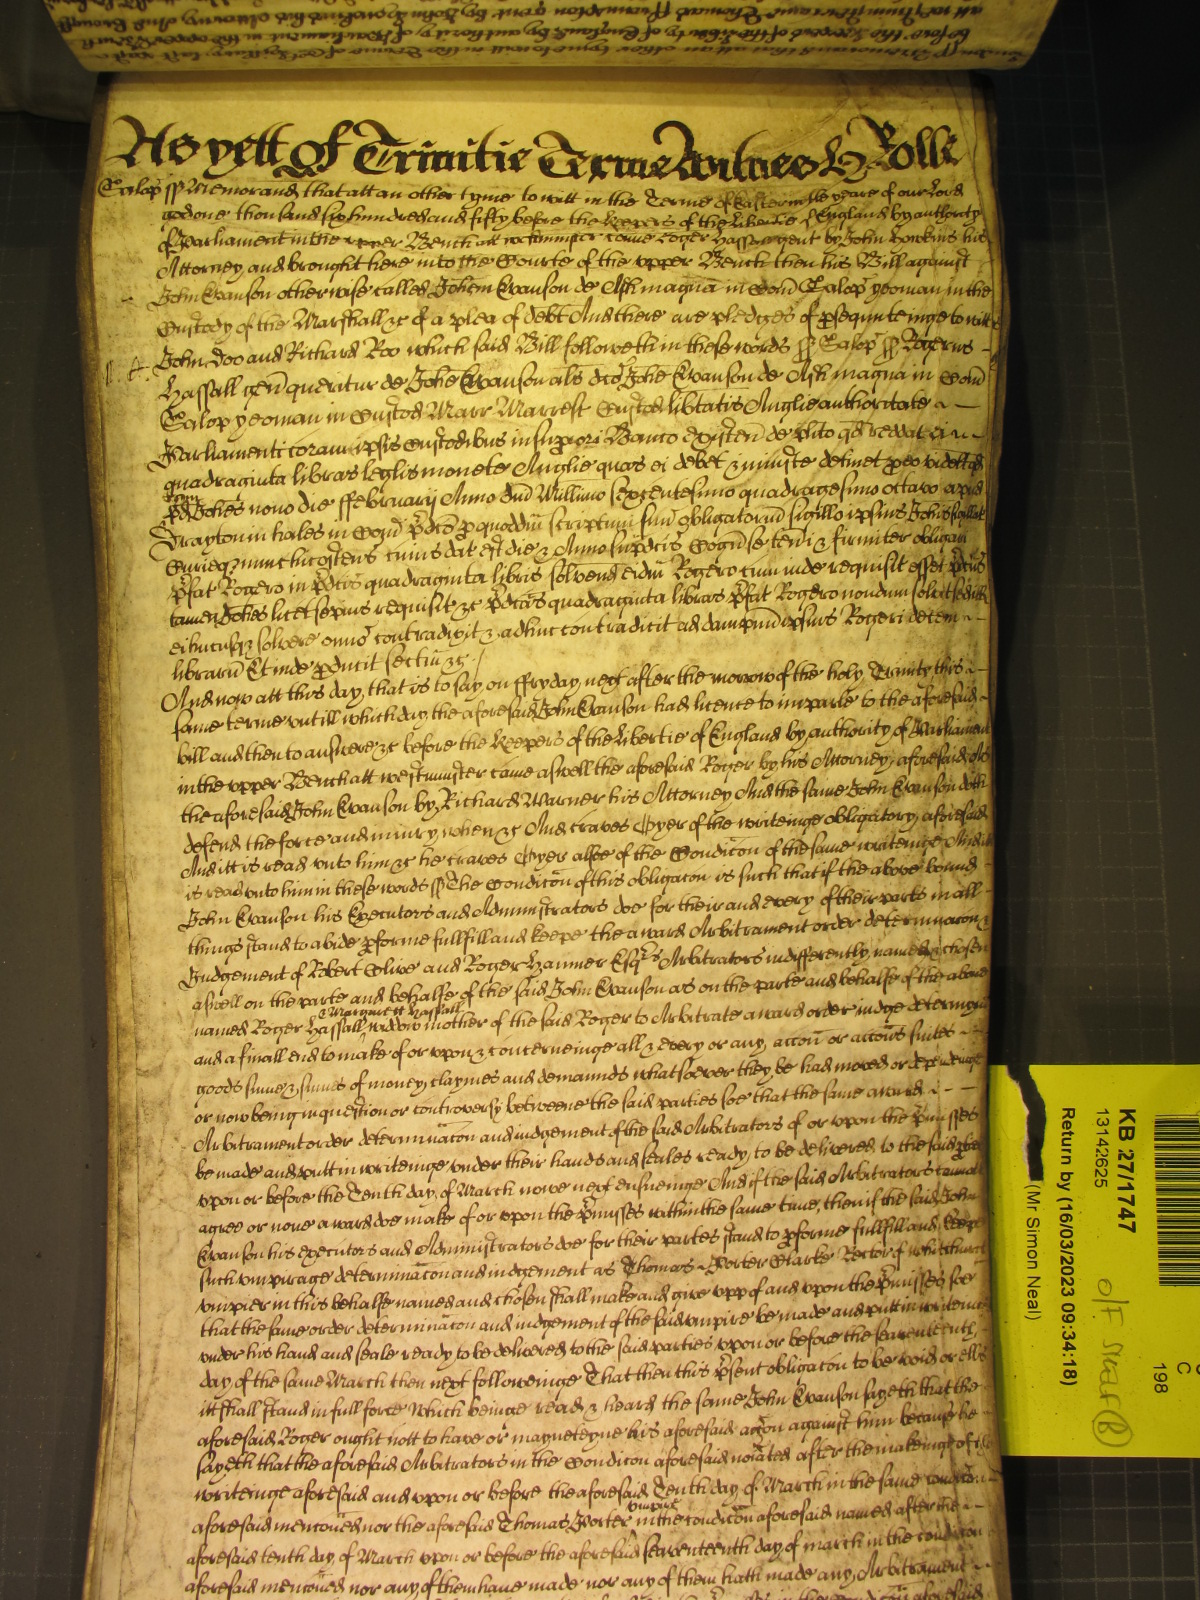 As yett of Trinitie Terme Witnes H Rolle
Salop ss Memorand that att an other tyme to witt in the Terme of Easter in the yeare of our Lord
god one thousand six hundred and fifty before the keepers of the Libertie of England by authority
of Parliament in the upper Bench att westminster came Roger Hassall gent by John Hawkins his
Attorney, and brought here into the Courte of the upper Bench then his Bill against
John Evanson otherwise called Johem Evanson de Ash magna in Com Salop yeoman in the
Custody of the Marshall &c of a plea of debt And there are pledges of prsequuteinge to witt
John Doo and Richard Roo which said Bill followeth in these words ss Salop ss Rogerus
Hassall gen queritur de Johe Evanson als dco Johe Evanson de Ash magna in Com
Salop yeoman in Custod Marr Marresct Custod libtatis Anglie authoritate
Parliamenti coram ipsis Custodibus in supiori Banco existen de plito qd reddat ei
quadraginta libras leglis monete Anglie quas ei debet & iniuste detinet p eo videltqd
cum
pd Johes nono die ffebruarij Anno Dni Millimo sexcentesimo quadragesimo octavo apud
Drayton in hales in Com pdco p quoddm scriptum suu obligatorm sigillo ipsius Johis sigillat
Curieq nunc hic ostens cuius dat est die & Anno supdcis Cogn se teneri & firmiter obligari
pfat Rogero in pdcis quadraginta libris solvend eidm Rogero cum inde requisit esset pdcus
tamen Johes licet sepius requisit &c pdcas quadraginta libras pfat Rogero nondum solvit sed ill
ei hucusq solvere omno contradixit & adhuc contradicit ad dampnu ipsius Rogeri decem
libraru Et inde pducit sectm &c
And now att this day, that is to say, on ffryday next after the morrow of the holy Trinity this
same terme untill which day the aforesaid John Evanson had licence to imparle to the aforesaid
bill and then to answere &c before the Keepers of the Libertie of England by authority of Parliament
in the upper Bench att westminster came aswell the aforesaid Roger by his Attorney, aforesaid as
the aforesaid John Evanson by Richard Warner his Attorney And the same John Evanson doth
defend the force and iniury when &c And craves Oyer of the writeinge obligatory, aforesaid
And itt is read unto him &c he craves Oyer alsoe of the Condicon of the same writeinge And itt
is read unto him in these words ss The Condicon of this obligacon is such that if the above bound
John Evanson his Executors and Administrators doe for their and every of their parts in all
things stand to abide pforme fullfill and keepe the award Arbitrament order determinacon &
Judgement of Robert Clive and Roger Hanmer Esqrs Arbitrators indifferently, named & chosen
aswell on the parte and behalfe of the said John Evanson as on the parte and behalfe of the above
Margarett Hassall
named Roger Hassall, widdow mother of the said Roger to Arbitrate award order iudge determine
and a finall end to make of or upon & concerneinge all & every or any, accon or accons suites
goods sume & sumes of money, claymes and demaunds whatsoever they be had moved or dependinge
or now being in question or controversy betweene the said parties soe that the same award
Arbitrament order determinacon and iudgement of the said Arbitrators of or upon the pmisses
be made and putt in writeinge under their hands and seales ready, to be delivered to the said pties
upon or before the Tenth day of March nowe next ensueinge And if the said Arbitrators cannot
agree or none award doe make of or upon the pmisses within the same time, then if the said John
Evanson his executors and Administrators doe for their partes stand to pforme fullfill and keepe
such umpirage determinacon and iudgement as Thomas Porter Clarke Rector of whitchurch
umpier in this behalfe named and chosen shall make and give upp of and upon the pmisses soe
that the same order determinacon and iudgement of the said umpire be made and putt in writeinge
under his hand and seale ready to be delivered to the said parties upon or before the seaventeenth
day of the same March then next followeinge That then this psent obligacon to be void or ells
itt shall stand in full force Which beinge read & heard the same John Evanson sayeth that the
aforesaid Roger ought nott to have or maynteyne his aforesaid accon against him because he
sayeth that the aforesaid Arbitrators in the Condicon aforesaid noiated after the makeinge of the
writeinge aforesaid and upon or before the aforesaid Tenth day of March in the same condicon
umpire
aforesaid menconed nor the aforesaid Thomas Porter in the condicon aforesaid named after the
aforesaid tenth day, of March upon or before the aforesaid seaventeenth day of march in the condicon
aforesaid menconed nor any of them have made nor any of them hath made any, Arbitrament
KB 27/1747
13142625
Return by (16/03/2023 09:34:18)
(Mr Simon Neal)
198
C